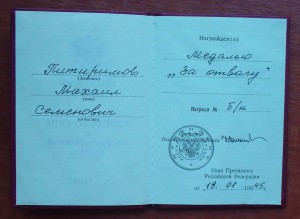 Питиримов
(фамилия)
Михаил
(имя)
Семенович
(отчество)
Награжден(а)
Медалью
„За отвагу“
Награда № б/н
Указ Президента
Российской Федерации
от 19. 01 1945г.